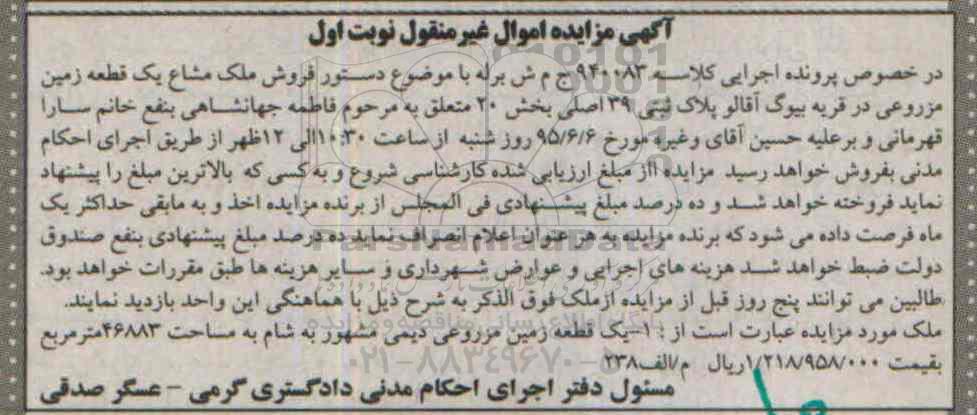 آگهی مزایده اموال غیر منقول نوبت اول
در خصوص پرونده اجرایی کلاسه ۹۴۰۰۸۳ ج م ش برله با موضوع دستور فروش ملک مشاع یک قطعه زمین
مزروعی در قریه بیوگ آقالو پلاک ثبتی ۳۹ اصلی بخش ۲۰ متعلق به مرحوم فاطمه جهانشاهی بنفع خانم سارا
قهرمانی و برعلیه حسین آقای وغیره مورخ ۹۵/۶/۶ روز شنبه از ساعت ۱۰:۳۰ الی ۱۲ ظهر از طریق اجرای احکام
مدنی بفروش خواهد رسید مزایده ااز مبلغ ارزیابی شده کارشناسی شروع و به کسی که بالاترین مبلغ را پیشنهاد
نماید فروخته خواهد شد و ده درصد مبلغ پیشنهادی فی المجلس از برنده مزایده اخذ و به مابقی حداکثر یک
ماه فرصت داده می شود که برنده مزایده به هر عنوان اعلام انصراف نماید ده درصد مبلغ پیشنهادی بنفع صندوق
دولت ضبط خواهد شد هزینه های اجرایی و عوارض شهرداری و سایر هزینه ها طبق مقررات خواهد بود.
طالبین می توانند پنج روز قبل از مزایده ازملک فوق الذکر به شرح ذیل با هماهنگی این واحد بازدید نمایند.
ملک مورد مزایده عبارت است از : ۱-یک قطعه زمین مزروعی دیمی مشهور به شام به مساحت ۴۶۸۸۳مترمربع
بقیمت ۱/۲۱۸/۹۵۸/۰۰۰ریال م/الف۲۳۸
مسئول دفتر اجرای احکام مدنی دادگستری گرمی - عسگر صدقی
ParsNamadData
۰۲۱-۸۸۳۴۹۶۷۰-۵